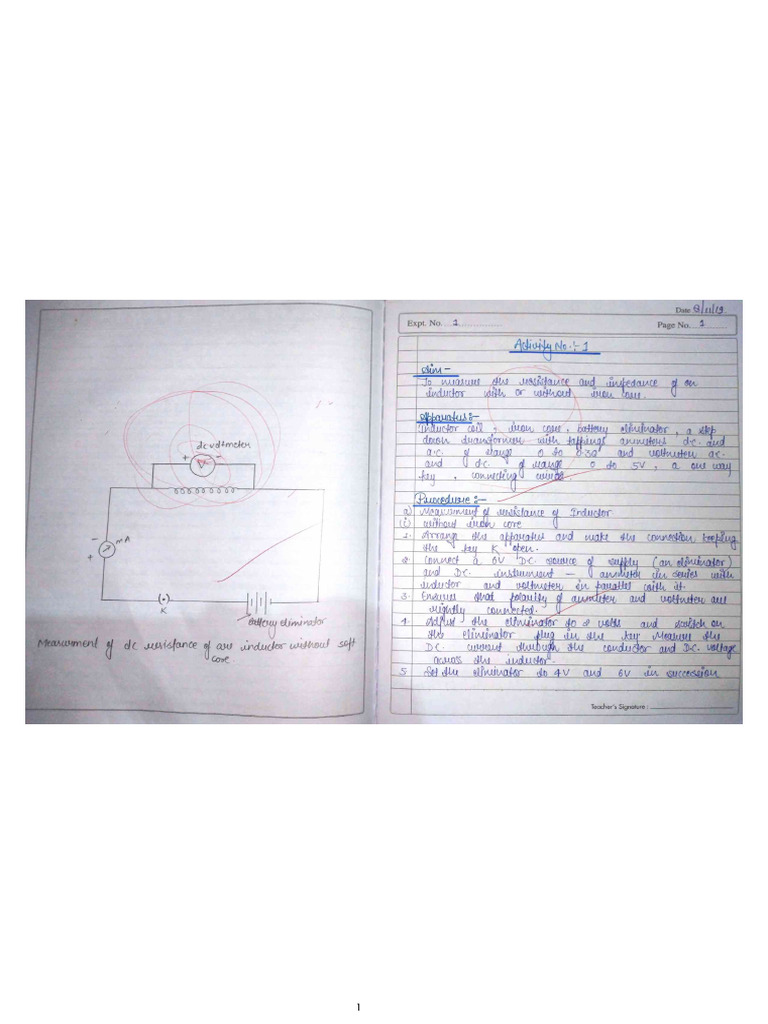 dc voltmeter
+ -
- mA
+
K
Battery eliminator
Measurment of dc resistance of are inductor without soft
core
Date 8/11/19
Expt. No. 1
Page No. 1
Activity No.:- 1
Aim -
To measure the resistance and impedance of an
inductor with or without iron core.
Apparatus:-
Inductor coil, iron core, battery eliminator, a step
down transformer with tappings ammeters dc. and
a.c. of range 0 to and voltmeter ac.
and dc. of range 0 to 5V, a one way
key, connecting wires
Procedure:-
a) Measurment of resistance of Inductor
(i) without iron core
1. Arrange the apparatus and make the connection keeping
the key K open.
2. Connect a 6V D.C source of supply (an eliminator)
and D.C. instrument — ammeter in series with
inductor and voltmeter in parallel with it.
3. Ensures that polarity of ammeter and voltmeter are
rightly connected.
4. Adjust the eliminator to 2 volts and switch on
the eliminator plug in the key Measure the
D.C. current through the conductor and D.C. voltage
across the inductor.
5. Set the eliminator to 4V and 6V in succession
Teacher's Signature :
1